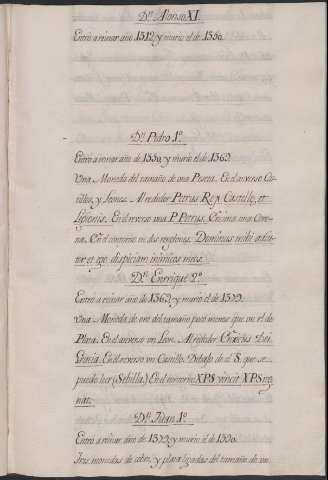 Dn. Alonso XI.
Entró a reinar año 1312, y murio el de 1350.
Dn. Pedro 1º.
Entró a reinar año de 1350, y murio el de 1369.
Una Moneda del tamaño de una Peseta. En el anverso Cas-
tillos, y Leones. Al rededor Petrus Rex Castelle, et
Legionis. En el reverso una P. Petrus. Encima una Coro-
na. En el contorno en dos renglones. Dominus mihi adiu-
tor et ego dispiciam inimicos meos.
Dn. Enrrique 2º.
Entró a reinar año de 1369, y murio el de 1379.
Una Moneda de oro del tamaño poco menos que un rl. de
Plata. En el anverso un Leon. Al rededor Enricus Dei
Gracia. En el reverso un Castillo. Debajo de el S. que se
puede leer (Sebilla.) En el contorno XPS vincit XPS reg-
nat.
Dn. Juan 1º.
Entró a reinar año de 1379, y murio el de 1390.
Tres monedas de cobre, y plata ligadas del tamaño de un